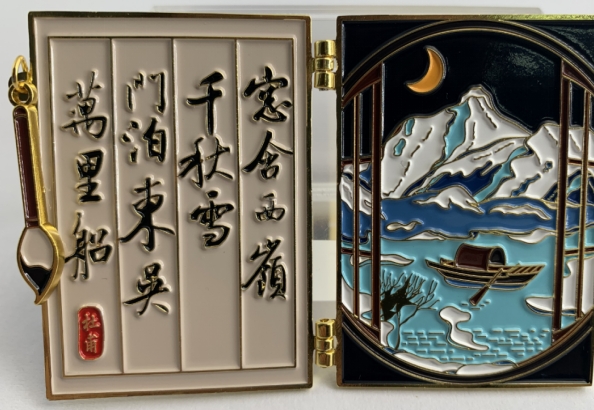 窓含西嶺
千秋雪
門泊東吳
萬里船
杜甫